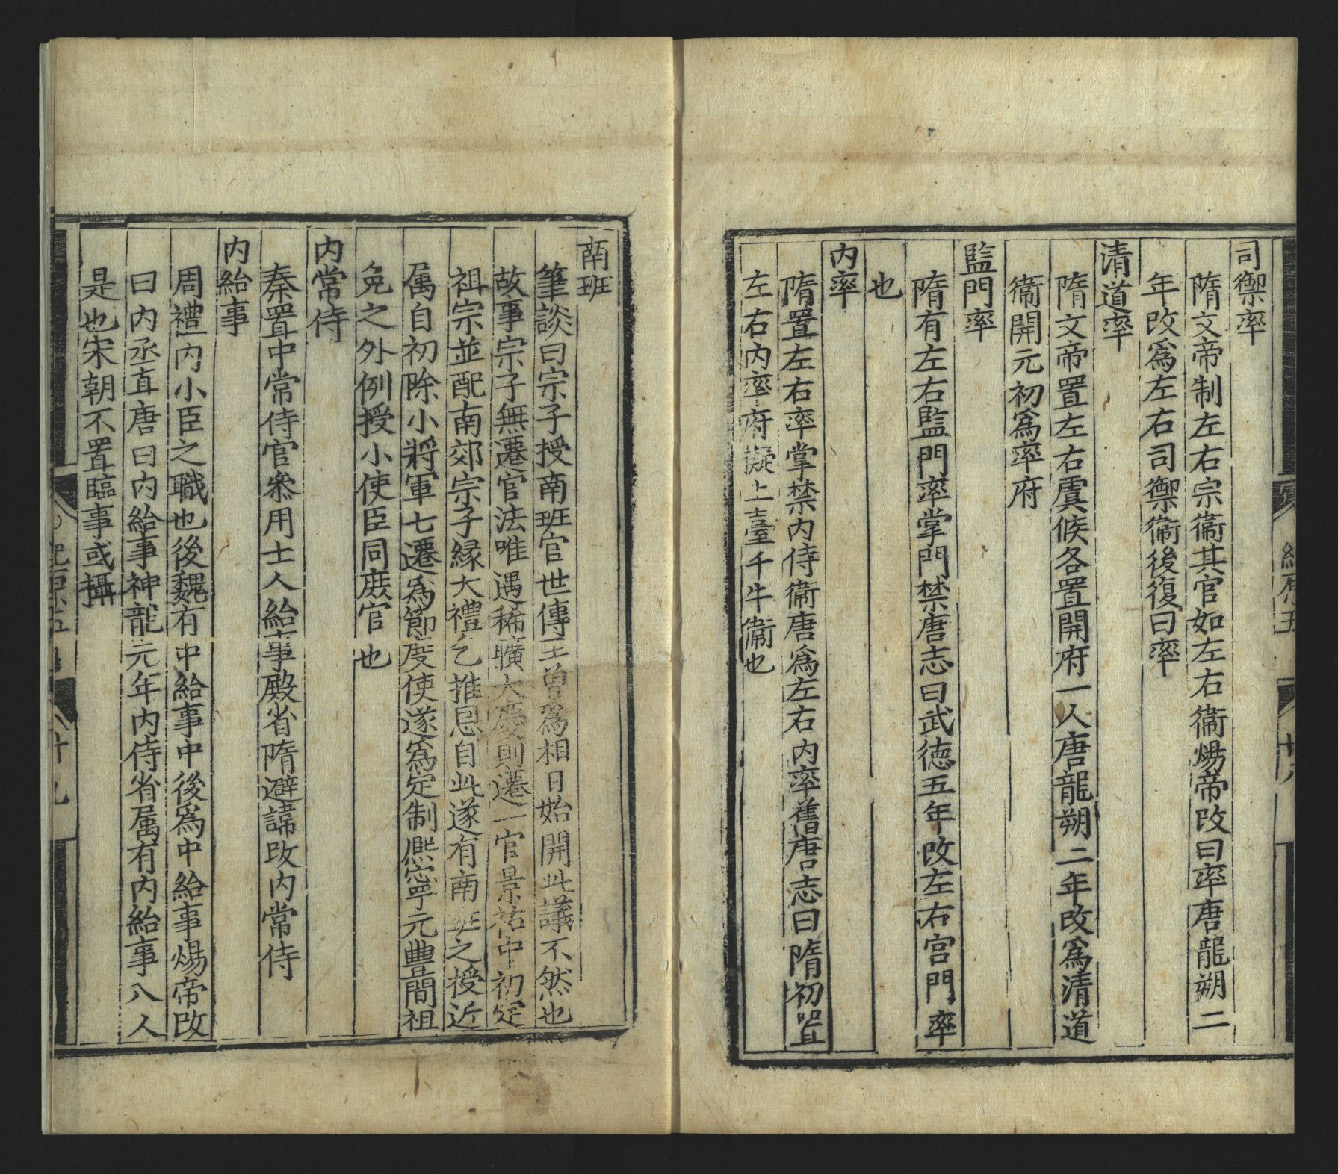 司禦率
隋文帝制左右宗衞其官如左右衞煬帝改曰率唐龍朔二
年改爲左右司禦衞後復曰率
清道率
隋文帝置左右虞候各置開府一人唐龍朔二年改爲清道
衞開元初爲率府
監門率
隋有左右監門率掌門禁唐志曰武德五年改左右宮門率
也
内率
隋置左右率掌禁内侍衞唐爲左右内率舊唐志曰隋初置
左右内率府擬上臺千牛衞也
南班
筆談曰宗子授南班官世傳王曾爲相日始開此議不然也
故事宗子無遷官法唯遇稀曠大慶則遷一官景祐中初定
祖宗並配南郊宗子緣大禮乞推恩自此遂有南班之授近
属自初除小將軍七遷爲節度使遂爲定制熙寧元豐間祖
免之外例授小使臣同庶官也
内常侍
秦置中常侍官叅用士人給事殿省隋避諱改内常侍
内給事
周禮内小臣之職也後魏有中給事中後爲中給事煬帝改
曰内丞直唐曰内給事神龍元年内侍省属有内給事八人
是也宋朝不置臨事或攝